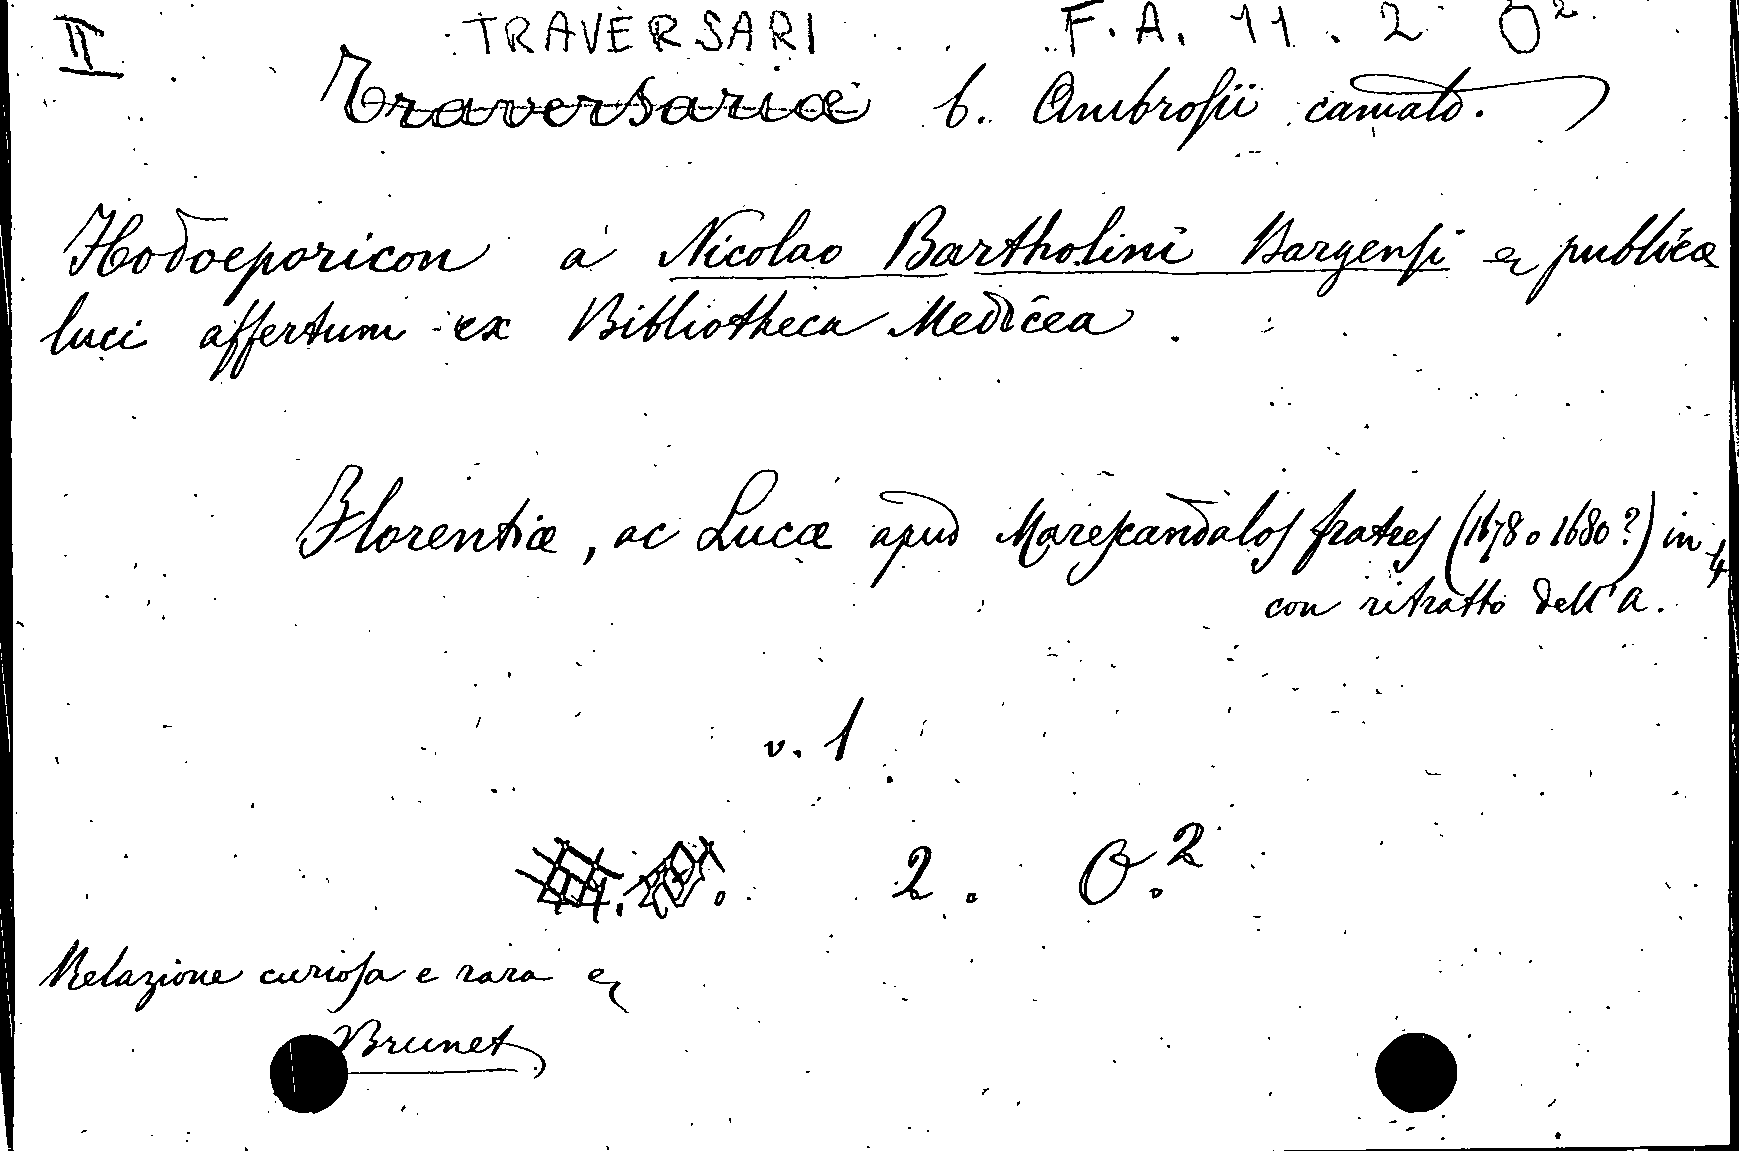 II TRAVERSARI F. A. 11. 2 O².
Traversariæ b. Ambrosii camald.
Hodoeporicon a Nicolao Bartholini Bargensi &c publicæ
luci assertum ex Bibliotheca Medicea.
Florentiæ, ac Lucæ apud Marescandalos fratres (1678 o 1680?) in 4
con ritratto dell'A.
v. 1
2. O.²
Relazione curiosa e rara &c
Brunet